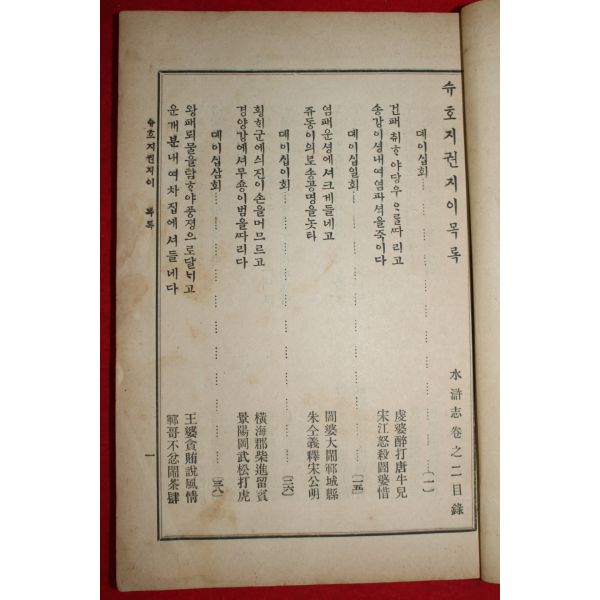 슈호지권지이목록 水滸志卷之二目錄
뎨이십회 (一)
건패취ᄒᆞ야당우ᄋᆞ를따리고 虔婆醉打唐牛兒
송강이셩내여염파셕을죽이다 宋江怒殺閻婆惜
뎨이십일회 (一五)
염패운셩에셔크게들네고 閻婆大鬧鄆城縣
쥬동이의로송공명을놋타 朱仝義釋宋公明
뎨이십이회 (二六)
횡ᄒᆡ군에싀진이손을머므르고 橫海郡柴進留賓
경양강에셔무숑이범을따리다 景陽岡武松打虎
뎨이십삼회 (三八)
왕패뢰물을탐ᄒᆞ야풍졍으로달ᄂᆡ고 王婆貪賄說風情
운개분내여차집에셔들네다 鄆哥不忿鬧茶肆
슈호지권지이 목록 一